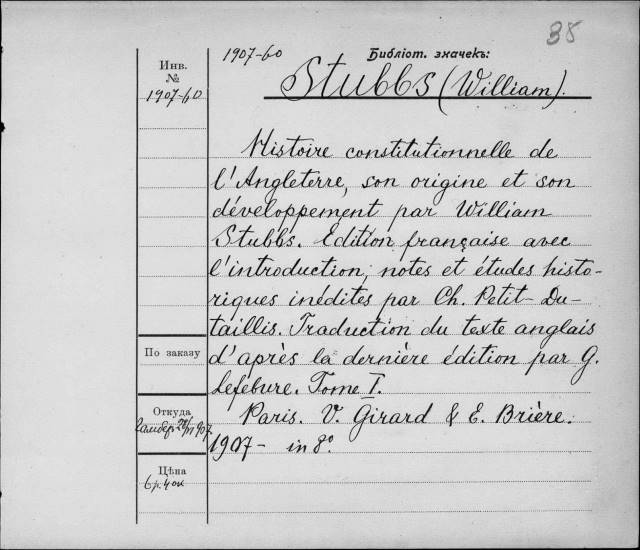 38
1907-60
Библіот. значекъ:
Инв.
№
1907-60
Stubbs (William).
Histoire constitutionnelle de
l'Angleterre, son origine et son
développement par William
Stubbs. Édition française avec
l'introduction, notes et études histo-
riques inédites par Ch. Petit-Du-
taillis. Traduction du texte anglais
d'après la dernière édition par G.
Lefébure. Tome I.
Paris. V. Girard & E. Brière.
1907- in 8º
По заказу
Откуда
1907
Цѣна
6 р. 40 к